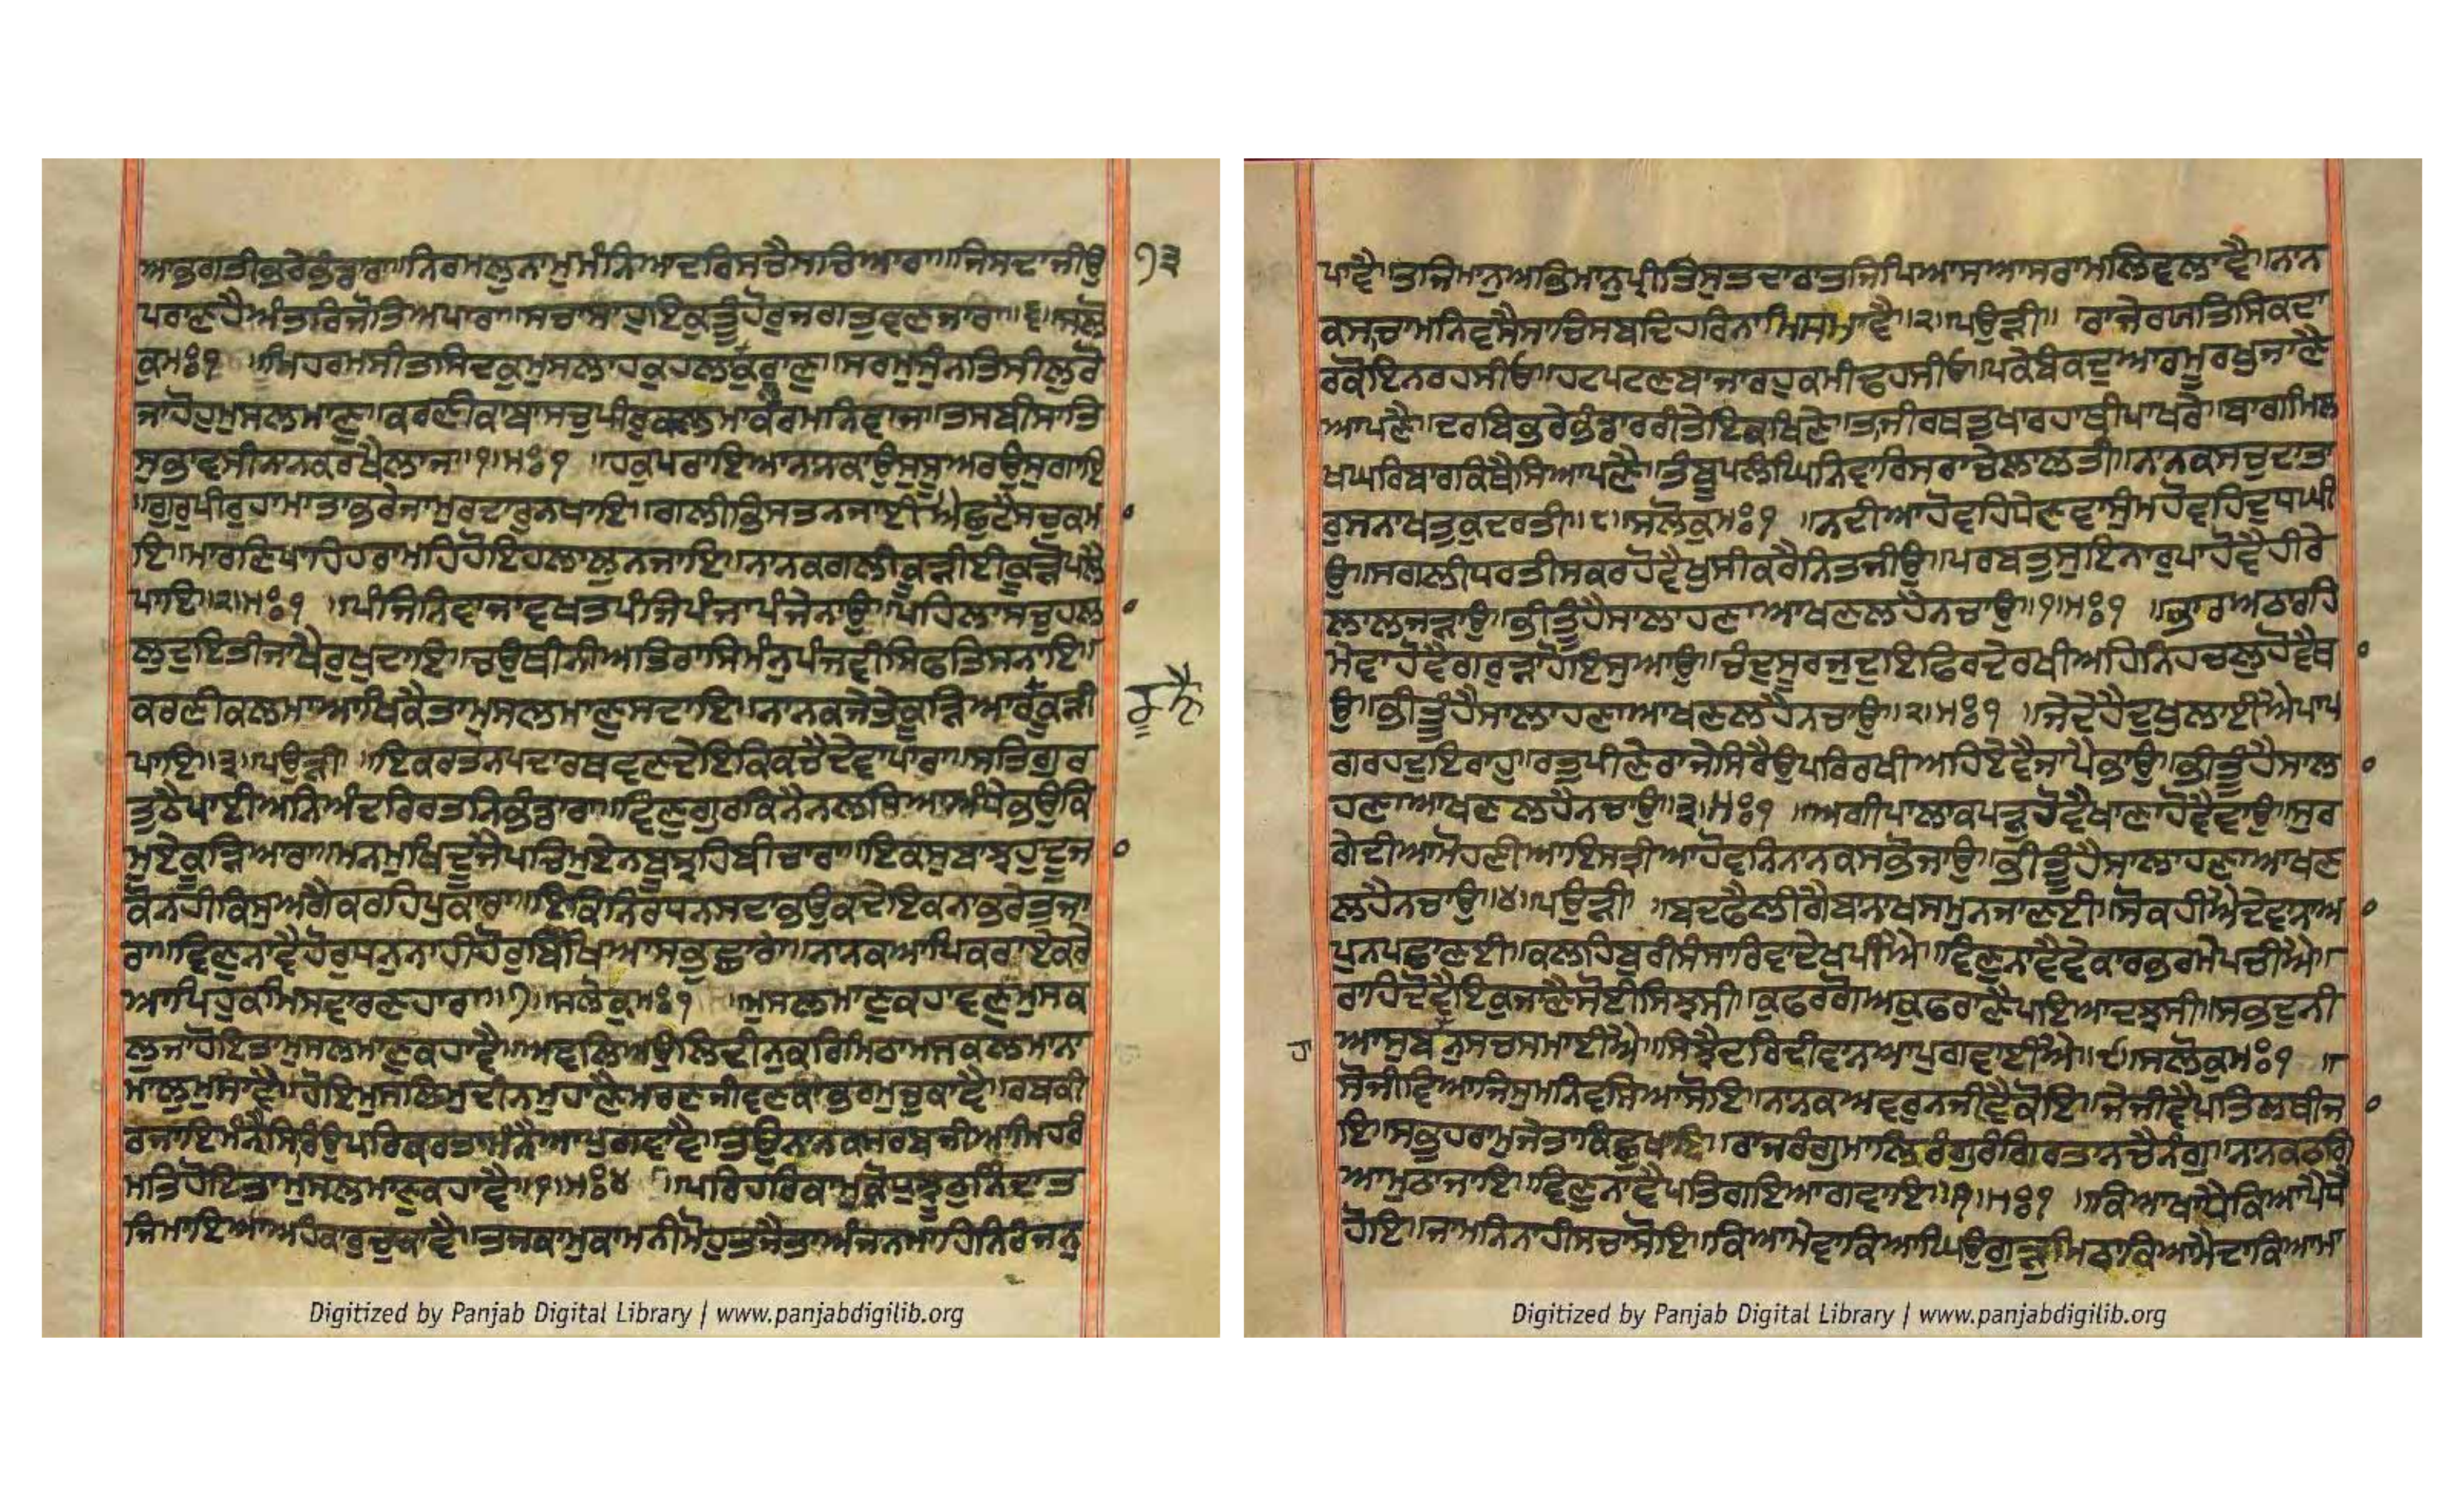 ਆਭਗਤੀਭਰੇਭੰਡਾਰਾ॥ਨਿਰਮਲੁਨਾਮੁਮੰਨਿਆਦਰਿਸਚੈਸਚਿਆਰਾ॥ਜਿਸਦਾਜੀਉ
੧੩
ਪਰਾਣਹੈਅੰਤਰਿਜੋਤਿਅਪਾਰਾ॥ਸਚਾਸਾਹੁਇਕੁਤੂੰਹੋਰੁਜਗਤੁਵਣਜਾਰਾ॥੬॥ਸਲੋ
ਕੁਮਃ੧ ॥ਮਿਹਰਮਸੀਤਿਸਿਦਕੁਮੁਸਲਾਹਕੁਹਲਾਲੁਕੁਰਾਣੁ॥ਸਰਮਸੁੰਨਤਿਸੀਲੁਰੋ
ਜਾਹੋਹੁਮੁਸਲਮਾਣੁ॥ਕਰਣੀਕਾਬਾਸਚੁਪੀਰੁਕਲਮਾਕਰਮਨਿਵਾਜ॥ਤਸਬੀਸਾਤਿ
ਸੁਭਾਵਸੀਨਾਨਕਰਖੈਲਾਜ॥੧॥ਮਃ੧ ॥ਹਕੁਪਰਾਇਆਨਾਨਕਾਉਸੁਸੂਅਰਉਸੁਗਾਇ
॥ਗੁਰੁਪੀਰੁਹਾਮਾਤਾਭਰੇਜਾਮੁਰਦਾਰੁਨਖਾਇ॥ਗਲੀਭਿਸਤਨਜਾਈਐਛੁਟੈਸਚੁਕਮ
ਇ॥ਮਾਰਣਿਪਾਹਿਹਰਾਮਹਿਹੋਇਹਲਾਲੁਨਜਾਇ॥ਨਾਨਕਗਲੀਕੂੜੀਈਕੂੜੋਪਲੈ
ਪਾਇ॥੨॥ਮਃ੧ ॥ਪੰਜਿਨਿਵਾਜਾਵਖਤਪੰਜਿਪੰਜਾਪੰਜੇਨਾਉ॥ਪਹਿਲਾਸਚੁਹਲਾ
ਲੁਦੁਇਤੀਜਾਖੈਰੁਖੁਦਾਇ॥ਚਉਥੀਨੀਅਤਿਰਾਸਿਮੰਨੁਪੰਜਵੀਸਿਫਤਿਸਨਾਇ॥
ਕਰਣੀਕਲਮਾਆਖਿਕੈਤਾਮੁਸਲਮਾਣੁਸਦਾਇ॥ਨਾਨਕਜੇਤੇਕੂੜਿਆਰਕੂੜੀ
ਪਾਇ॥੩॥ਪਉੜੀ ॥ਇਕਰਤਨਪਦਾਰਥਵਣਦੇਇਕਿਕਚੈਦੇਵਾਪਾਰਾ॥ਸਤਿਗੁਰ
ਤੁਠੈਪਾਈਅਨਿਅੰਦਰਿਰਤਨਿਭੰਡਾਰਾ॥ਵਿਣੁਗੁਰਕਿਨੈਨਲਧਿਆਅੰਧੇਭਉਕਿ
ਮੁਏਕੂੜਿਆਰਾ॥ਮਨਮੁਖਿਦੂਜੈਪਚਿਮੁਏਨਬੂਝਹਿਬੀਚਾਰਾ॥ਇਕਸੁਬਾਝਹੁਦੂਜ
ਕੋਨਹੀਕਿਸੁਅਗੈਕਰਹਿਪੁਕਾਰਾ॥ਇਕਿਨਿਰਧਨਸਦਾਭਉਕਦੇਇਕਨਾਭਰੇਤੁਜਾ
ਰਾ॥ਵਿਣੁਨਾਵੈਹੋਰੁਧਨੁਨਾਹੀਹੋਰੁਬਿਖਿਆਸਭੁਛਾਰਾ॥ਨਾਨਕਆਪਿਕਰਾਏਕਰੇ
ਆਪਿਹੁਕਮਿਸਵਾਰਣਹਾਰਾ॥੭॥ਸਲੋਕੁਮਃ੧ ॥ਮੁਸਲਮਾਣੁਕਹਾਵਣੁਮੁਸਕ
ਲੁਜਾਹੋਇਤਾਮੁਸਲਮਾਣੁਕਹਾਵੈ॥ਅਵਲਿਅਉਲਿਦੀਨੁਕਰਿਮਿਠਾਮਸਕਲਮਾਨਾ
ਮਾਲੁਮੁਸਾਵੈ॥ਹੋਇਮੁਸਲਿਮੁਦੀਨਮੁਹਾਣੈਮਰਣਜੀਵਣਕਾਭਰਮੁਚੁਕਾਵੈ॥ਰਬਕੀ
ਰਜਾਇਮੰਨੈਸਿਰਉਪਰਿਕਰਤਾਮੰਨੈਆਪੁਗਵਾਵੈ॥ਤਉਨਾਨਕਸਰਬਜੀਆਮਿਹਰੰ
ਮਤਿਹੋਇਤਾਮੁਸਲਮਾਣੁਕਹਾਵੈ॥੧॥ਮਃ੪ ॥ਪਰਹਰਿਕਾਮੁਕ੍ਰੋਧੁਝੂਠੁਨਿੰਦਾਤ
ਜਿਮਾਇਆਅਹੰਕਾਰੁਚੁਕਾਵੈ॥ਤਜਕਾਮੁਕਾਮਨੀਮੋਹੁਤਜੈਤਾਅੰਜਨਮਾਹਿਨਿਰੰਜਨੁ
ਪਾਵੈ॥ਤਜਿਮਾਨੁਅਭਿਮਾਨੁਪ੍ਰੀਤਿਸੁਤਦਾਰਾਤਜਿਪਿਆਸਆਸਰਾਮਲਿਵਲਾਵੈ॥ਨਾਨ
ਕਸਚਾਮਨਿਵਸੈਸਾਚਿਸਬਦਿਹਰਿਨਾਮਿਸਮਾਵੈ॥੨॥ਪਉੜੀ॥ ਰਾਜੇਰਯਤਿਸਿਕਦਾ
ਰਕੋਇਨਰਹਸੀਓ॥ਹਟਪਟਣਬਾਜਾਰਹੁਕਮੀਢਹਸੀਓ॥ਪਕੇਬੰਕਦੁਆਰਮੂਰਖੁਜਾਣੈ
ਆਪਣੈ॥ਦਰਬਿਭਰੇਭੰਡਾਰਰੀਤੇਇਕਿਖਿਣੇ॥ਤਾਜੀਰਥਤੁਖਾਰਹਾਥੀਪਾਖਰੇ॥ਬਾਗਮਿਲ
ਖਘਰਿਬਾਰਕਿਥੈਸਿਆਪਣੈ॥ਤੰਬੂਪਲੰਘਿਨਿਵਾਰਿਸਰਾਚੇਲਾਲਤੀ॥ਨਾਨਕਸਚੁਦਾਤਾ
ਰੁਸਨਾਖਤੁਕੁਦਰਤੀ॥੮॥ਸਲੋਕੁਮਃ੧ ॥ਨਦੀਆਹੋਵਹਿਧੇਣਵਾਸੁੰਮਹੋਵਹਿਦੁਧੁਘੀ
ਉ॥ਸਗਲੀਧਰਤੀਸਕਰਹੋਵੈਖੁਸੀਕਰੈਨਿਤਜੀਉ॥ਪਰਬਤੁਸੁਇਨਾਰੁਪਾਹੋਵੈਹੀਰੇ
ਲਾਲਜੜਾਉ॥ਭੀਤੂੰਹੈਸਾਲਾਹਣਾਆਖਣਲਹੈਨਚਾਉ॥੧॥ਮਃ੧ ॥ਭਾਰਅਠਾਰਹਿ
ਮੇਵਾਹੋਵੈਗਰੁੜਾਹੋਇਸੁਆਉ॥ਚੰਦੁਸੂਰਜੁਦੁਇਫਿਰਦੇਰਖੀਅਹਿਨਿਹਚਲੁਹੋਵੈਥ
ਉ॥ਭੀਤੂੰਹੈਸਾਲਾਹਣਾਆਖਣਲਹੈਨਚਾਉ॥੨॥ਮਃ੧ ॥ਜੇਦੇਹੈਦੁਖੁਲਾਈਐਪਾਪ
ਗਰਹਦੁਇਰਾਹੁ॥ਰਤੁਪੀਣੇਰਾਜੇਸਿਰੈਉਪਰਿਰਖੀਅਹਿਏਵੈਜਾਪੈਭਾਉ॥ਭੀਤੂੰਹੈਸਾਲ
ਹਣਾਆਖਣਲਹੈਨਚਾਉ॥੩॥ਮਃ੧ ॥ਅਗੀਪਾਲਾਕਪੜੁਹੋਵੈਖਾਣਾਹੋਵੈਵਾਉ॥ਸੁਰ
ਗੇਦੀਆਮੋਹਣੀਆਇਸਤ੍ਰੀਆਹੋਵਨਿਨਾਨਕਸਭੋਜਾਉ॥ਭੀਤੂੰਹੈਸਾਲਾਹਣਾਆਖਣ
ਲਹੈਨਚਾਉ॥੪॥ਪਉੜੀ ॥ਬਦਫੈਲੀਗੈਬਾਨਾਖਸਮੁਨਜਾਣਈ॥ਸੋਕਹੀਐਦੇਵਾਨਾਆ
ਪੁਨਪਛਾਣਈ॥ਕਲਹਿਬੁਰੀਸੰਸਾਰਿਵਾਦੇਖਪੀਐ॥ਵਿਣੁਨਾਵੈਵੇਕਾਰਭਰਮੇਪਚੀਐ॥
ਰਾਹਦੋਵੈਇਕੁਜਾਣੈਸੋਈਸਿਝਸੀ॥ਕੁਫਰਗੋਅਕੁਫਰਾਣੈਪਇਆਦਝਸੀ॥ਸਭਦੁਨੀ
ਆਸੁਬਹਾਨੁਸਚਸਮਾਈਐ॥ਸਿਝੈਦਰਿਦੀਵਾਨਆਪੁਗਵਾਈਐ॥੯॥ਸਲੋਕੁਮਃ੧ ॥
ਸੋਜੀਵਿਆਜਿਸੁਮਨਿਵਸਿਆਸੋਇ॥ਨਾਨਕਅਵਰੁਨਜੀਵੈਕੋਇ॥ਜੇਜੀਵੈਪਤਿਲਥੀਜ
ਇ॥ਸਭੁਹਰਾਮੁਜੇਤਾਕਿਛੁਖਾਇ॥ਰਾਜਰੰਗੁਮਾਲਿਰੰਗੁਰੰਗਿਰਤਾਨਚੈਨੰਗੁ॥ਨਾਨਕਠਗਿ
ਆਮੁਠਾਜਾਇ॥ਵਿਣੁਨਾਵੈਪਤਿਗਇਆਗਵਾਇ॥੧॥ਮਃ੧ ॥ਕਿਆਖਾਧੈਕਿਆਪੈਧੈ
ਹੋਇ॥ਜਾਮਨਿਨਾਹੀਸਚਾਸੋਇ॥ਕਿਆਮੇਵਾਕਿਆਘਿਉਗੁੜੁਮਿਠਾਕਿਆਮੈਦਾਕਿਆਮਾ
Digitized by Panjab Digital Library | www.panjabdigilib.org
Digitized by Panjab Digital Library | www.panjabdigilib.org